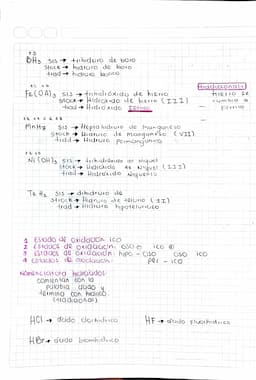 BH₃ sis → trihidruro de boro
stock → hidruro de boro
trad → hidruro bórico
Fe(OH)₃ sis → trihidróxido de hierro
stock → Hidróxido de hierro (III)
trad → Hidróxido férrico
tradicional:
hierro se
cambia a
ferrico
MnH₇ sis → Heptahidruro de manganeso
stock → hidruro de manganeso (VII)
trad → Hidruro permangánico
Ni(OH)₃ sis → trihidróxido de níquel
stock → Hidróxido de níquel (III)
trad → Hidróxido niquélico
Te H₂ sis → dihidruro de
stock → Hidruro de teluro (II)
trad → Hidruro hipoteluroso
1 Estado de oxidación ICO
2 Estados de oxidación: oso ico
3 Estados de oxidación: hipo - oso oso ico
4 estados de oxidación: per - ico
Nomenclatura hidrácidos:
comienzan con la
palabra ácido y
termina con hídrico.
(tradicional)
HCl → ácido clorhídrico
HF → ácido fluorhídrico
HBr → ácido bromhídrico